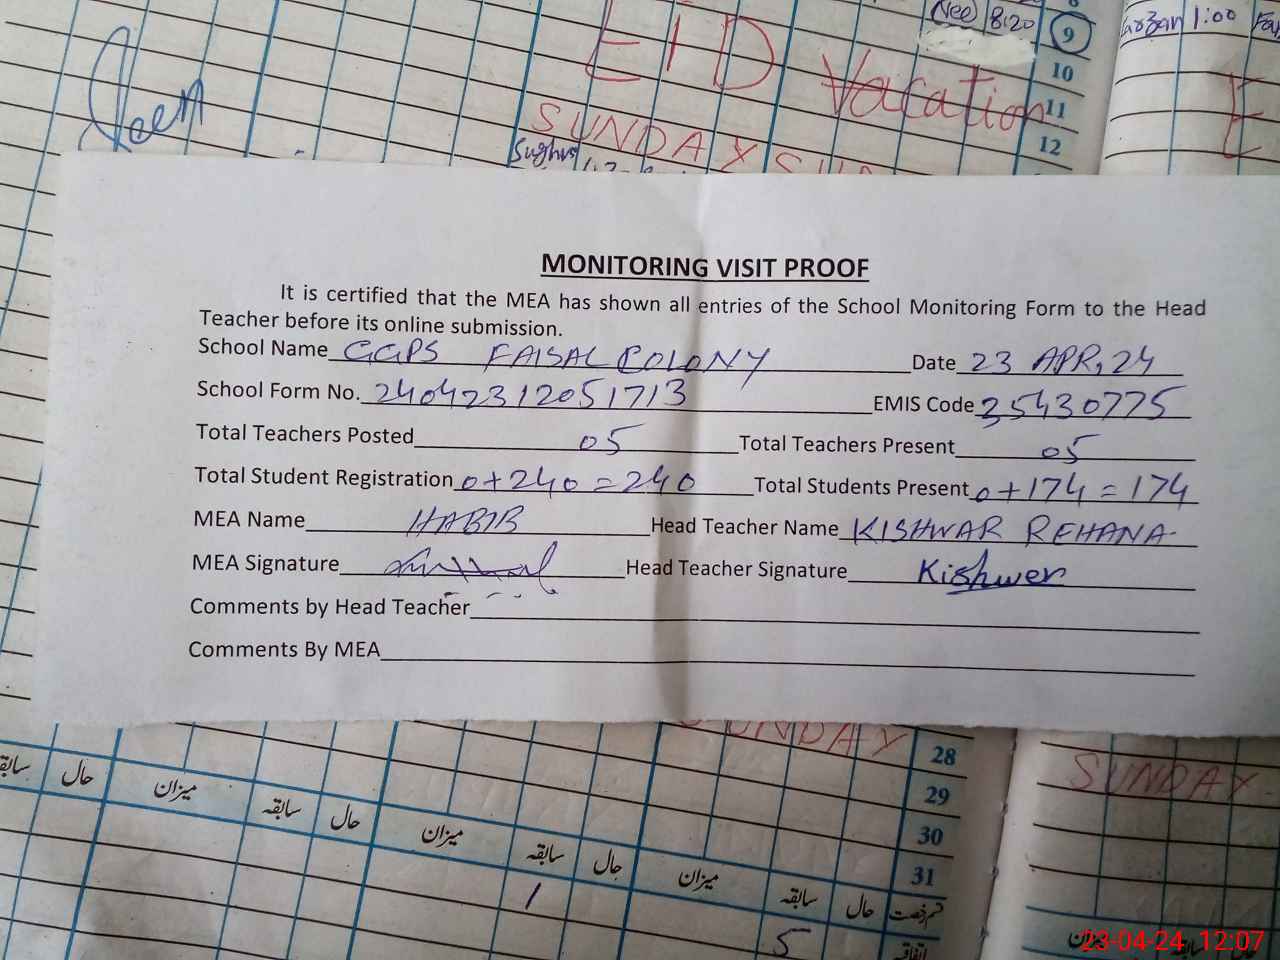 Nee 8:20 9
10
Vacation 11
12
EID
SUNDAY SUN
1:00
MONITORING VISIT PROOF
It is certified that the MEA has shown all entries of the School Monitoring Form to the Head
Teacher before its online submission.
School Name GGPS FAISAL COLONY Date 23 APR, 24
School Form No. 24042312051713 EMIS Code 35430775
Total Teachers Posted 05 Total Teachers Present 05
Total Student Registration 0+240=240 Total Students Present 0+174=174
MEA Name HABIB Head Teacher Name KISHWAR REHANA
MEA Signature Head Teacher Signature Kishwer
Comments by Head Teacher
Comments By MEA
SUNDAY 28
29
30
31
SUNDAY
سابقہ حال میزان سابقہ حال میزان سابقہ حال میزان سابقہ حال قسم رخصت
1
5 اتفاقیہ
میزان سابقہ حال
23-04-24 12:07